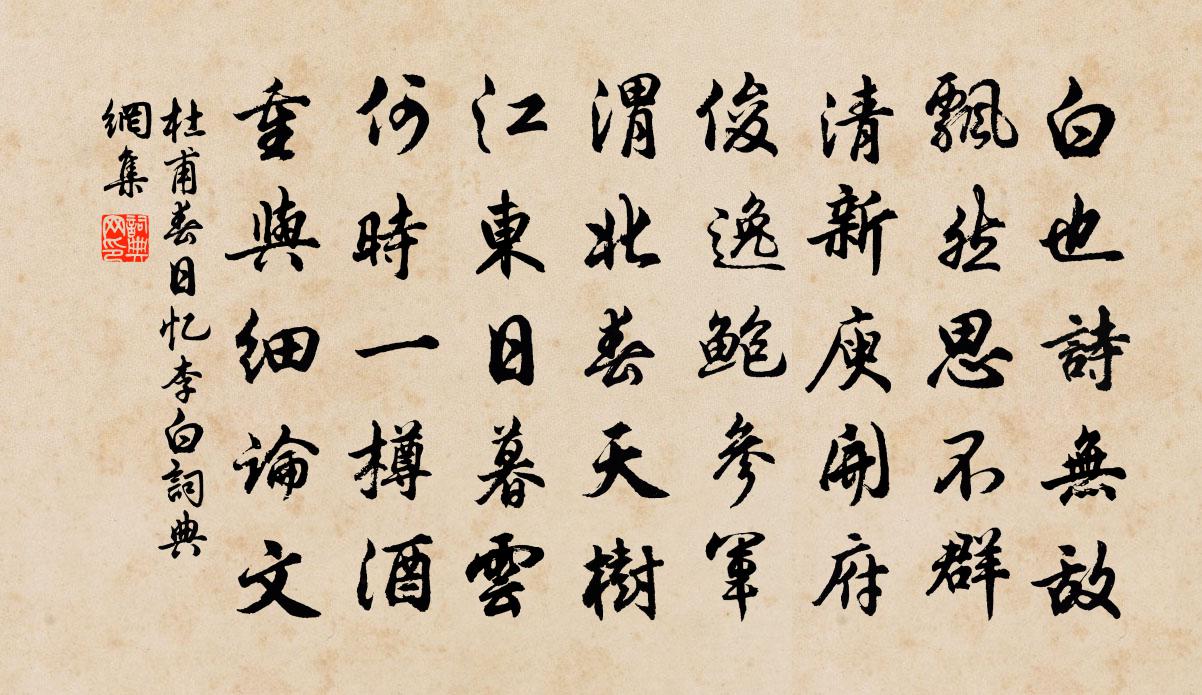 白也詩無敌
飄然思不群
清新庾開府
俊逸鮑參軍
渭北春天樹
江東日暮雲
何時一樽酒
重與细論文
杜甫春日忆李白詞典
網集
詞典
网印